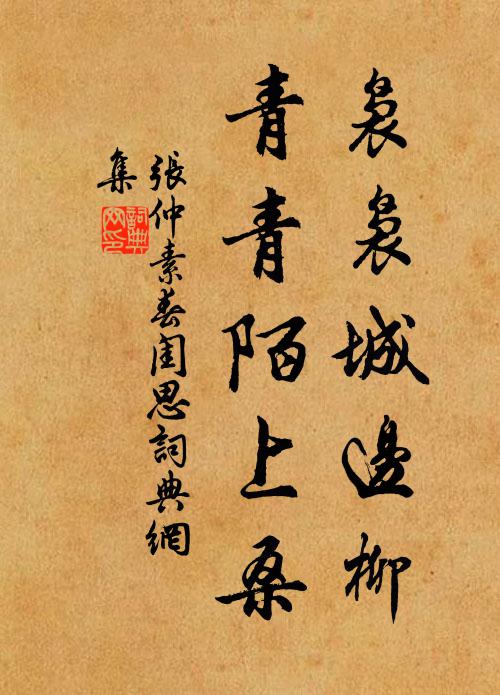 裊裊城邊柳
青青陌上桑
張仲素春閨思詞典網
集
詞典
网印